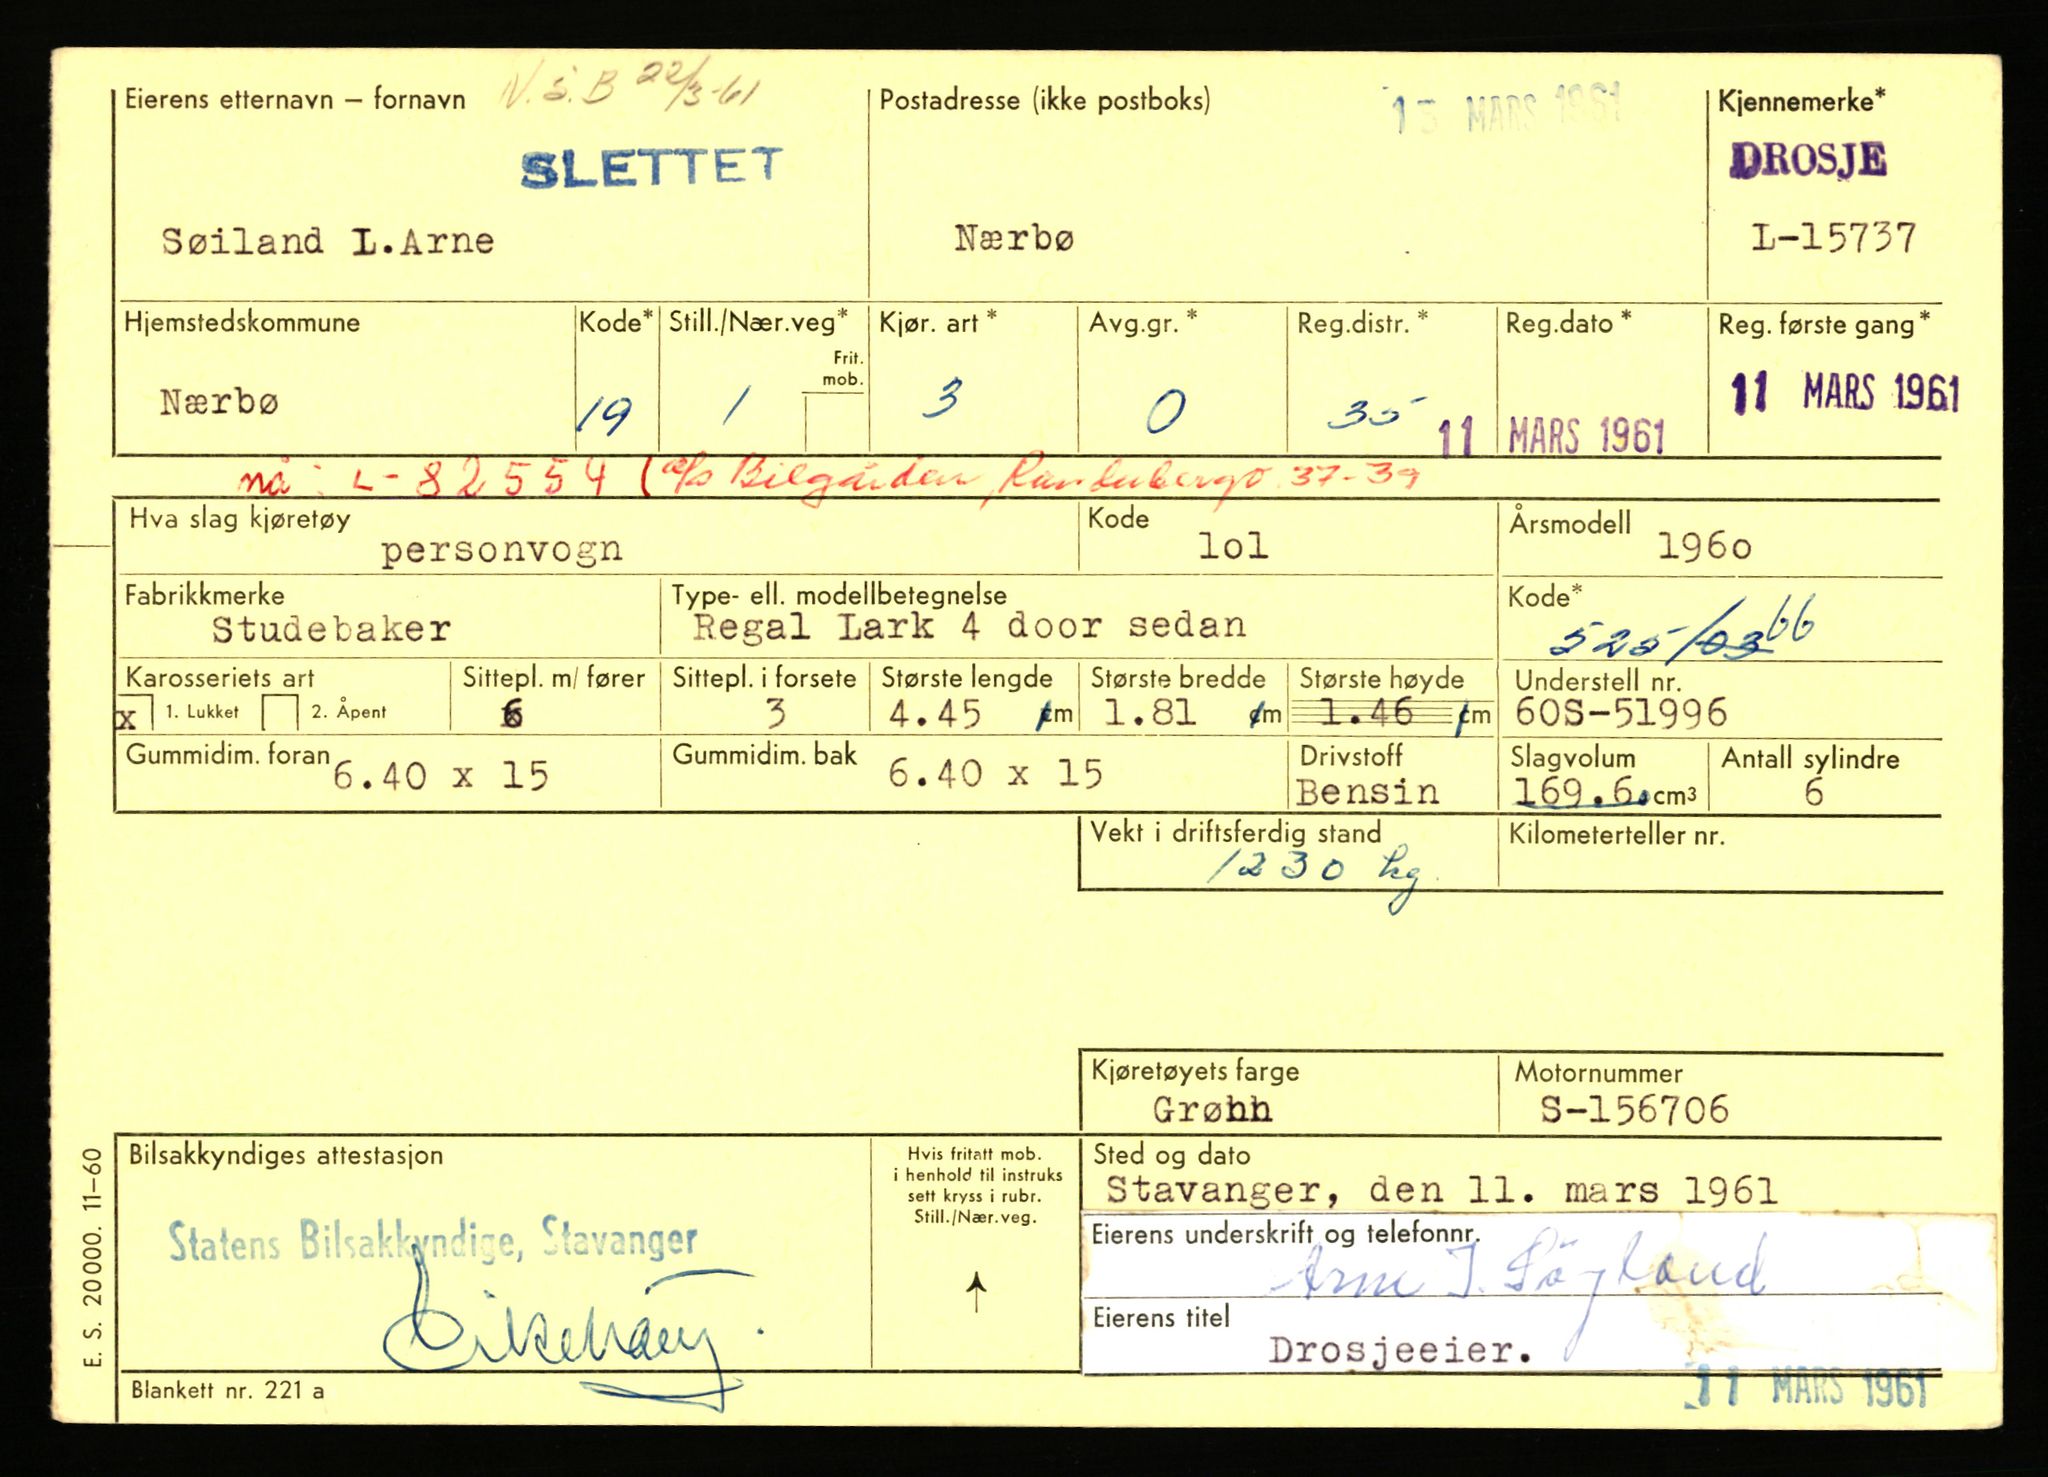 Eierens etternavn – fornavn N.S.B 22/3-61 Postadresse (ikke postboks) 13 MARS 1961 Kjennemerke*
SLETTET DROSJE
Søiland L.Arne Nærbø L-15737
Hjemstedskommune Kode* Still./Nær.veg* Kjør. art* Avg.gr.* Reg.distr.* Reg.dato* Reg. første gang*
Frit.
mob.
Nærbø 19 1 3 0 35 11 MARS 1961 11 MARS 1961
nå: L-82554 (a/s Bilgården, Randabergv. 37-39
Hva slag kjøretøy personvogn Kode 1o1 Årsmodell 196o
Fabrikkmerke Type- ell. modellbetegnelse Kode*
Studebaker Regal Lark 4 door sedan 525/03 66
Karosseriets art Sittepl. m/ fører Sittepl. i forsete Største lengde Største bredde Største høyde Understell nr.
x 1. Lukket 2. Åpent 6 3 4.45 cm 1.81 cm 1.46 cm 60S-51996
Gummidim. foran Gummidim. bak Drivstoff Slagvolum Antall sylindre
6.40 x 15 6.40 x 15 Bensin 169.6. cm³ 6
Vekt i driftsferdig stand Kilometerteller nr.
1230 kg.
Kjøretøyets farge Motornummer
Grøhh S-156706
Bilsakkyndiges attestasjon Hvis fritatt mob.
i henhold til instruks
sett kryss i rubr.
Still./Nær.veg.
Sted og dato
Stavanger, den 11. mars 1961
Statens Bilsakkyndige, Stavanger
Eierens underskrift og telefonnr.
Arne
Eierens titel
Drosjeeier.
11 MARS 1961
Blankett nr. 221 a
E. S. 20000. 11–60